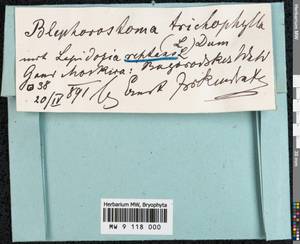 Blepharostoma trichophylla
(L.) Dum
mit Lepidozia reptans
Gouv Moskwa: Bogorodsker
38
20/IV 891 leg Ernst
Herbarium MW, Bryophyta
MW 9 118 000